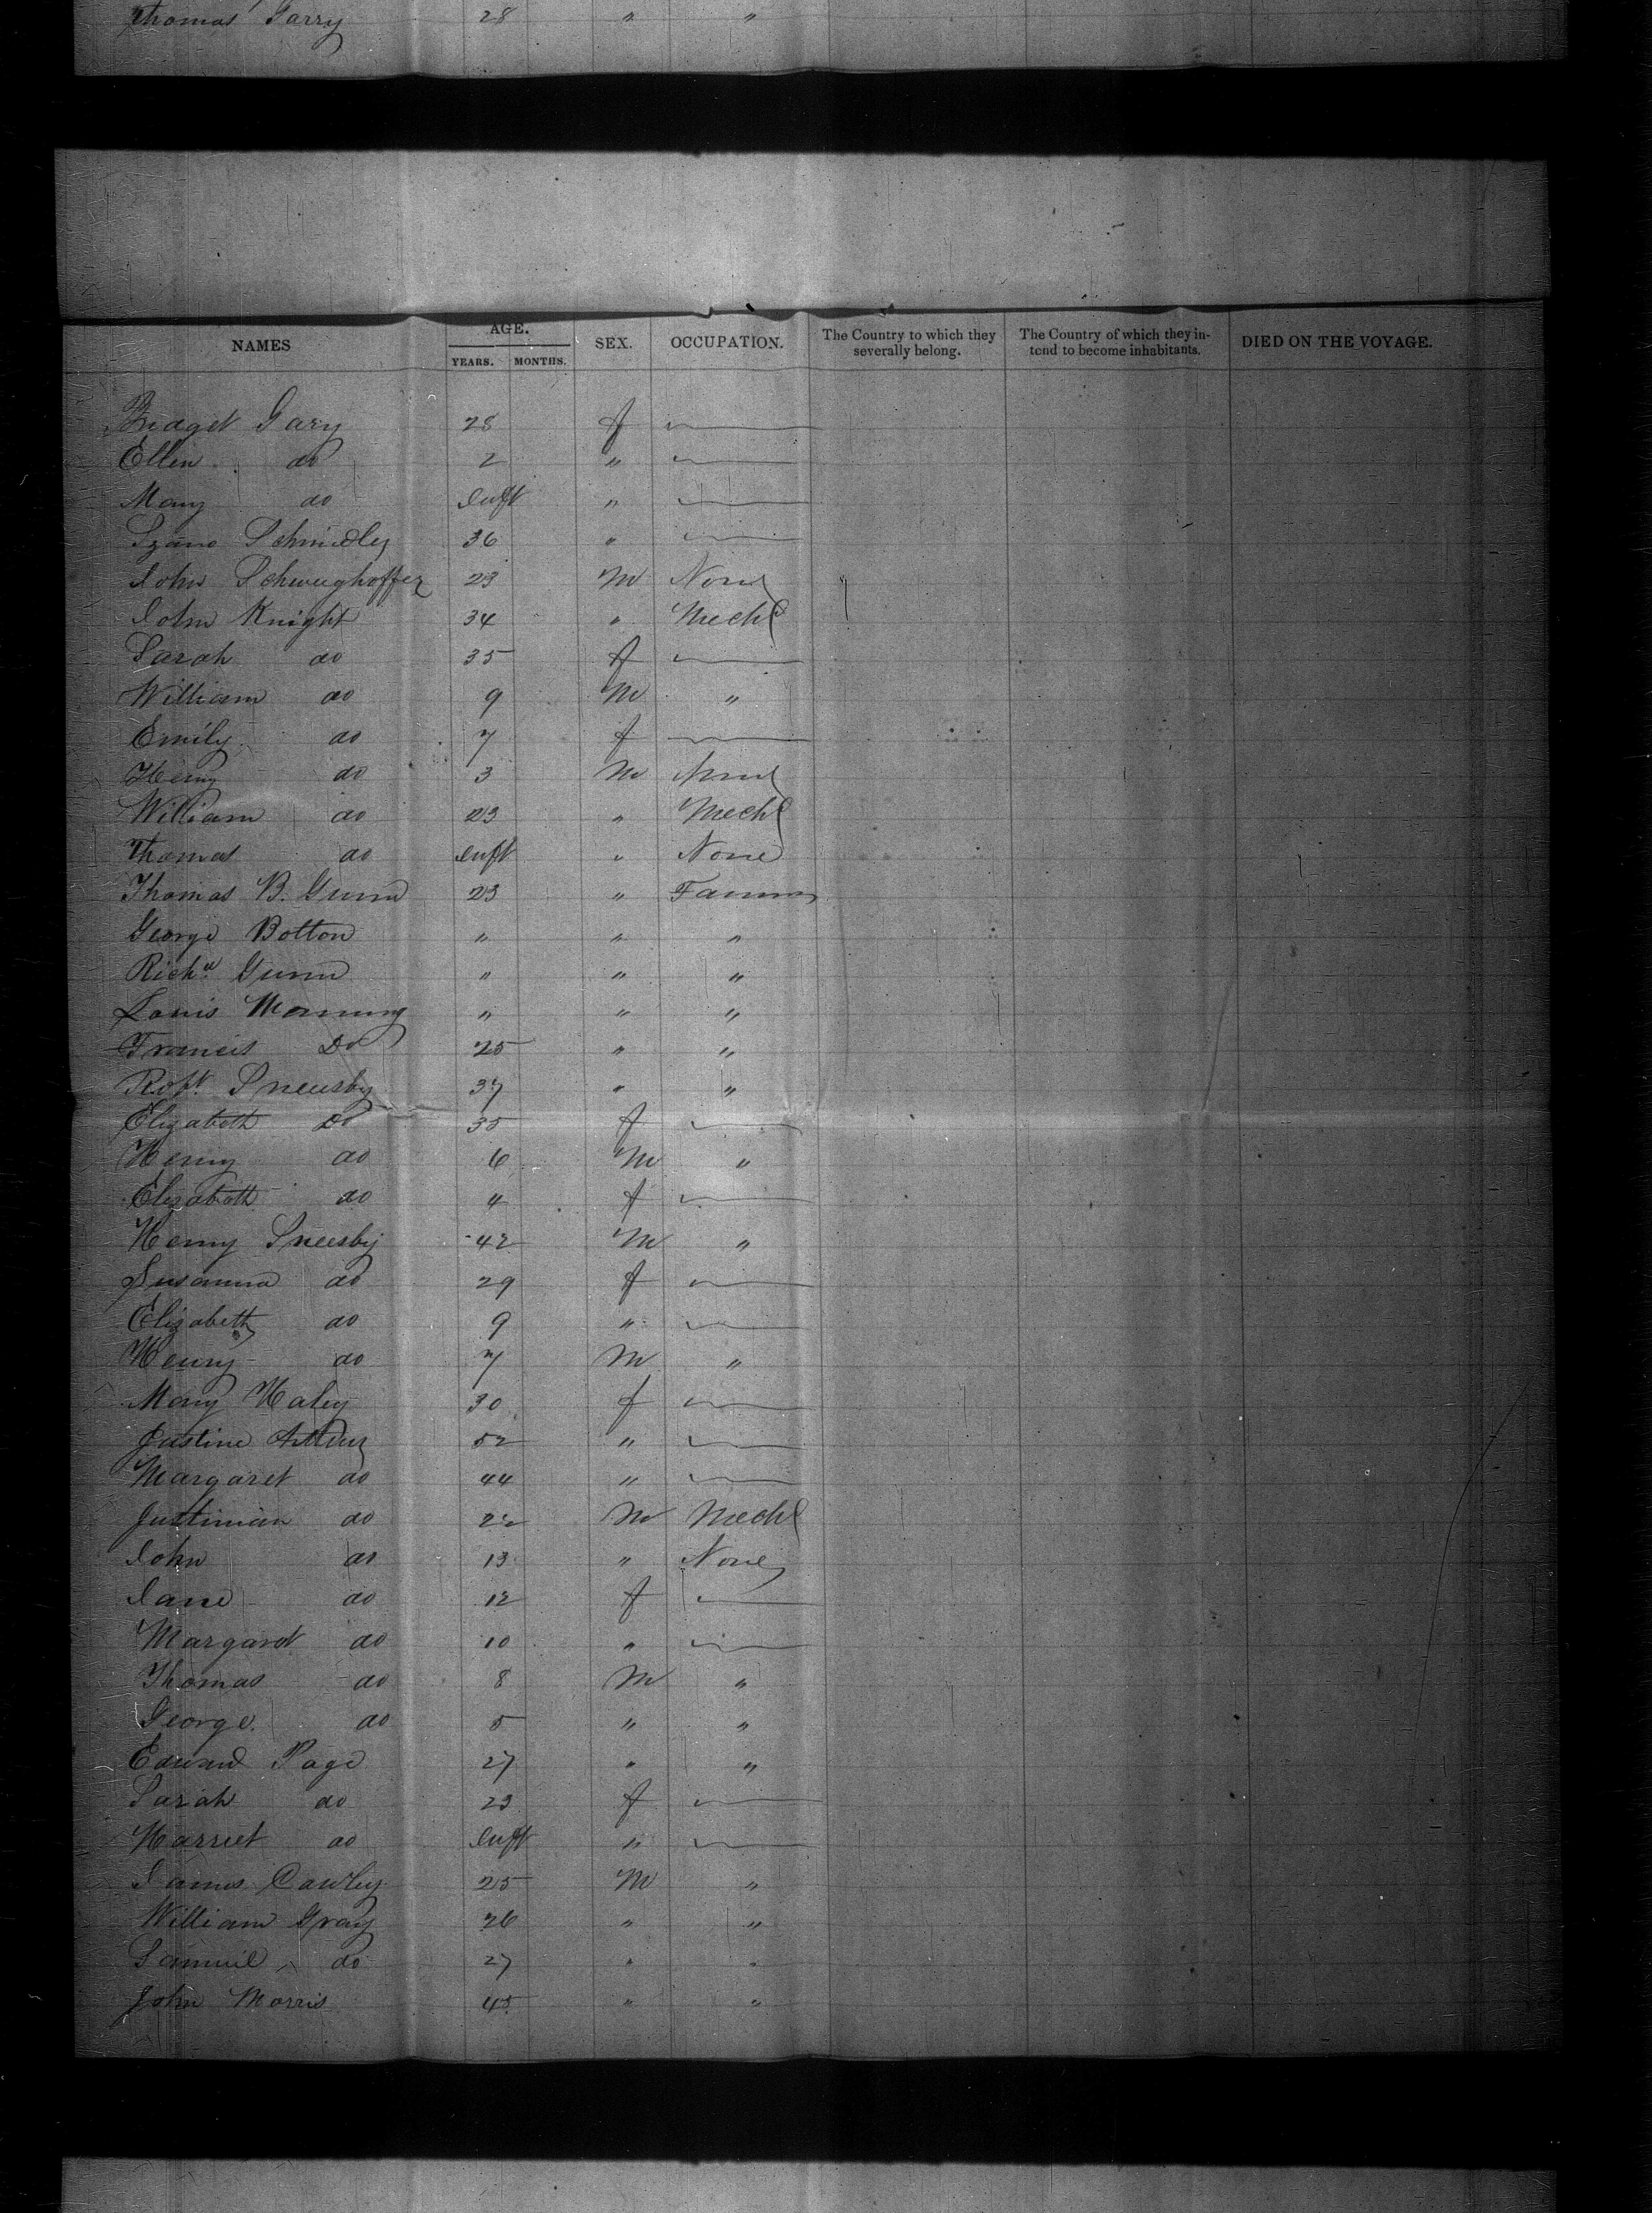 Thomas Garry 28 " "
NAMES AGE. YEARS. MONTHS. SEX. OCCUPATION. The Country to which they severally belong. The Country of which they intend to become inhabitants. DIED ON THE VOYAGE.
Bridget Gary 28 f —
Ellen do 2 " —
Mary do Inft " —
Schmidley 36 " —
John Schweighoffer 23 M None
John Knight 34 " Mechc
Sarah do 35 f —
William do 9 M "
Emily do 7 f —
Henry do 3 M None
William do 23 " Mechc
Thomas do Inft " None
Thomas B. Gunn 23 " Farmer
George Botton " " "
Richd Gunn " " "
Louis Manning " " "
Francis Do 25 " "
Robt. Sneesby 37 " "
Elizabeth Do 35 f —
Henry do 6 M "
Elizabeth do 4 f —
Henry Sneesby 42 M "
Susanna do 29 f —
Elizabeth do 9 " —
Henry do 7 M "
Mary Haley 30 f —
Justine 52 " —
Margaret do 44 " —
Justinian do 22 M Mechc
John do 13 " None
Jane do 12 f —
Margaret do 10 " —
Thomas do 8 M "
George do 5 " "
Edward Page 27 " "
Sarah do 23 f —
Harriet do Inft " —
James Cawley 25 M "
William Gray 26 " "
Samuel do 27 " "
John Morris 45 " "